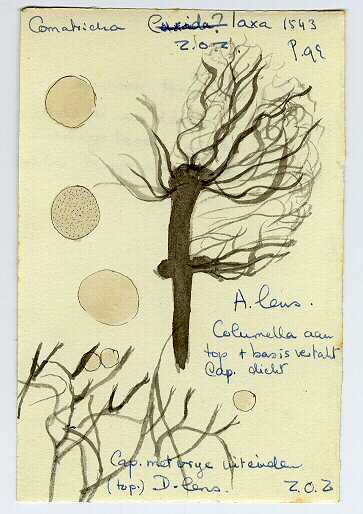 Comatricha laxa 1543
Z.O.Z.
P. 99
A. lens.
Columella aan
top + basis vertakt
Cap. dicht
Cap. met vrije uiteinden
(top.) D. lens.
Z.O.Z